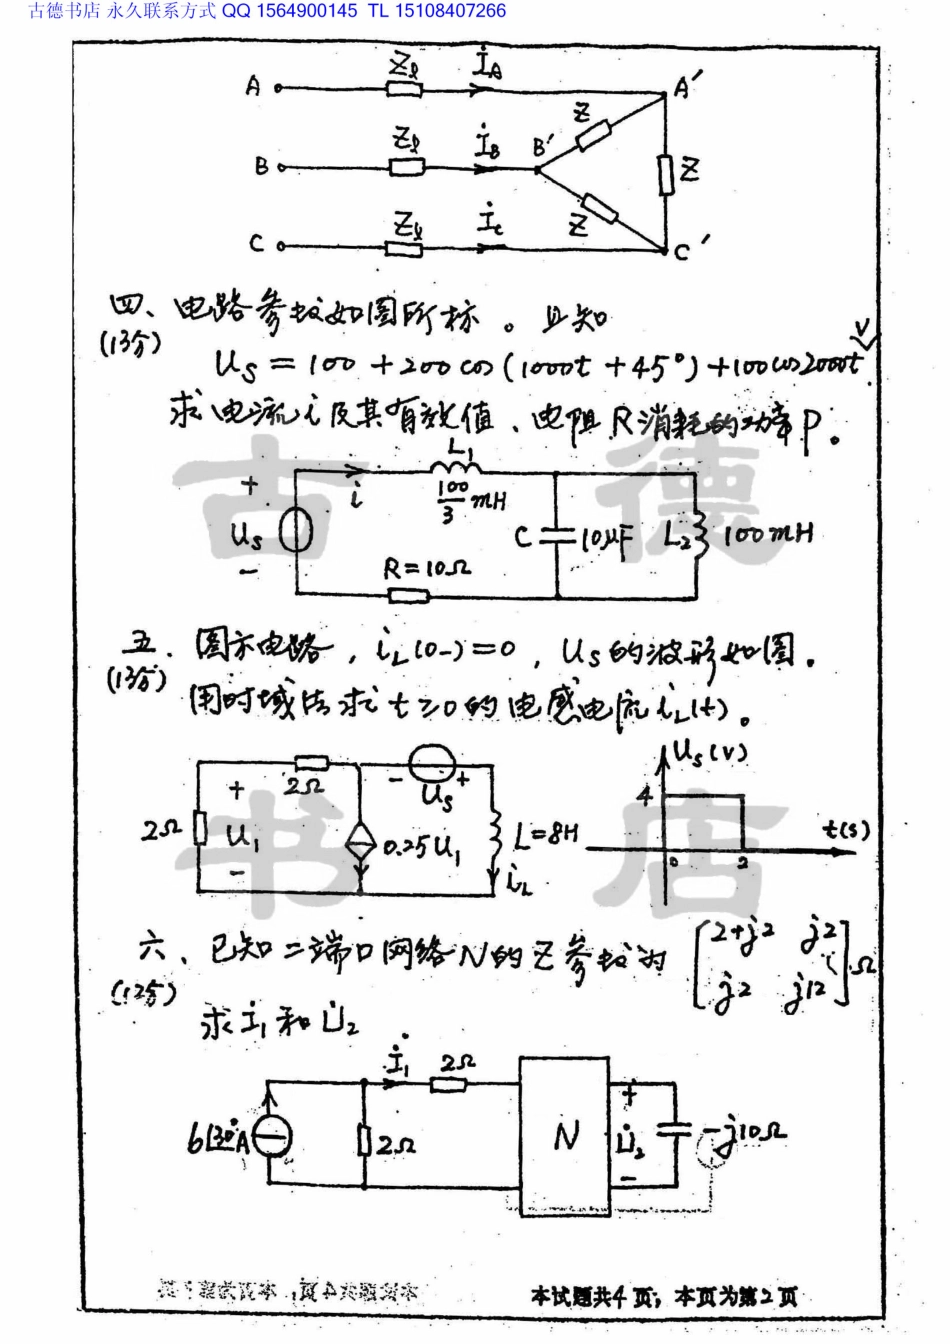 古德书店 永久联系方式 QQ 1564900145 TL 15108407266
A Zℓ İA A′
Z
B Zℓ İB B′ Z
C Zℓ İC Z C′
四、电路参数如图所标。且知
(13分)
us = 100 + 200 cos (1000t + 45°) + 100 cos 2000t V
求电流 i 及其有效值、电阻 R 消耗的功率 P。
L1
+ i 100/3 mH
us C 10μF L2 100mH
− R = 10Ω
五、图示电路，iL(0-) = 0，us 的波形如图。
(13分)
用时域法求 t≥0 的电感电流 iL(t)。
2Ω + U1 − 2Ω − us + us(V)
2Ω 0.25U1 L=8H 4 t(s)
iL 0 2
六、已知二端口网络 N 的 Z 参数为 [2+j2 j2
(12分) j2 j12] Ω
求 İ1 和 U̇2
İ1 2Ω
6∠30°A 2Ω N + U̇2 − −j10Ω
本试题共4页，本页为第2页
古德
书店